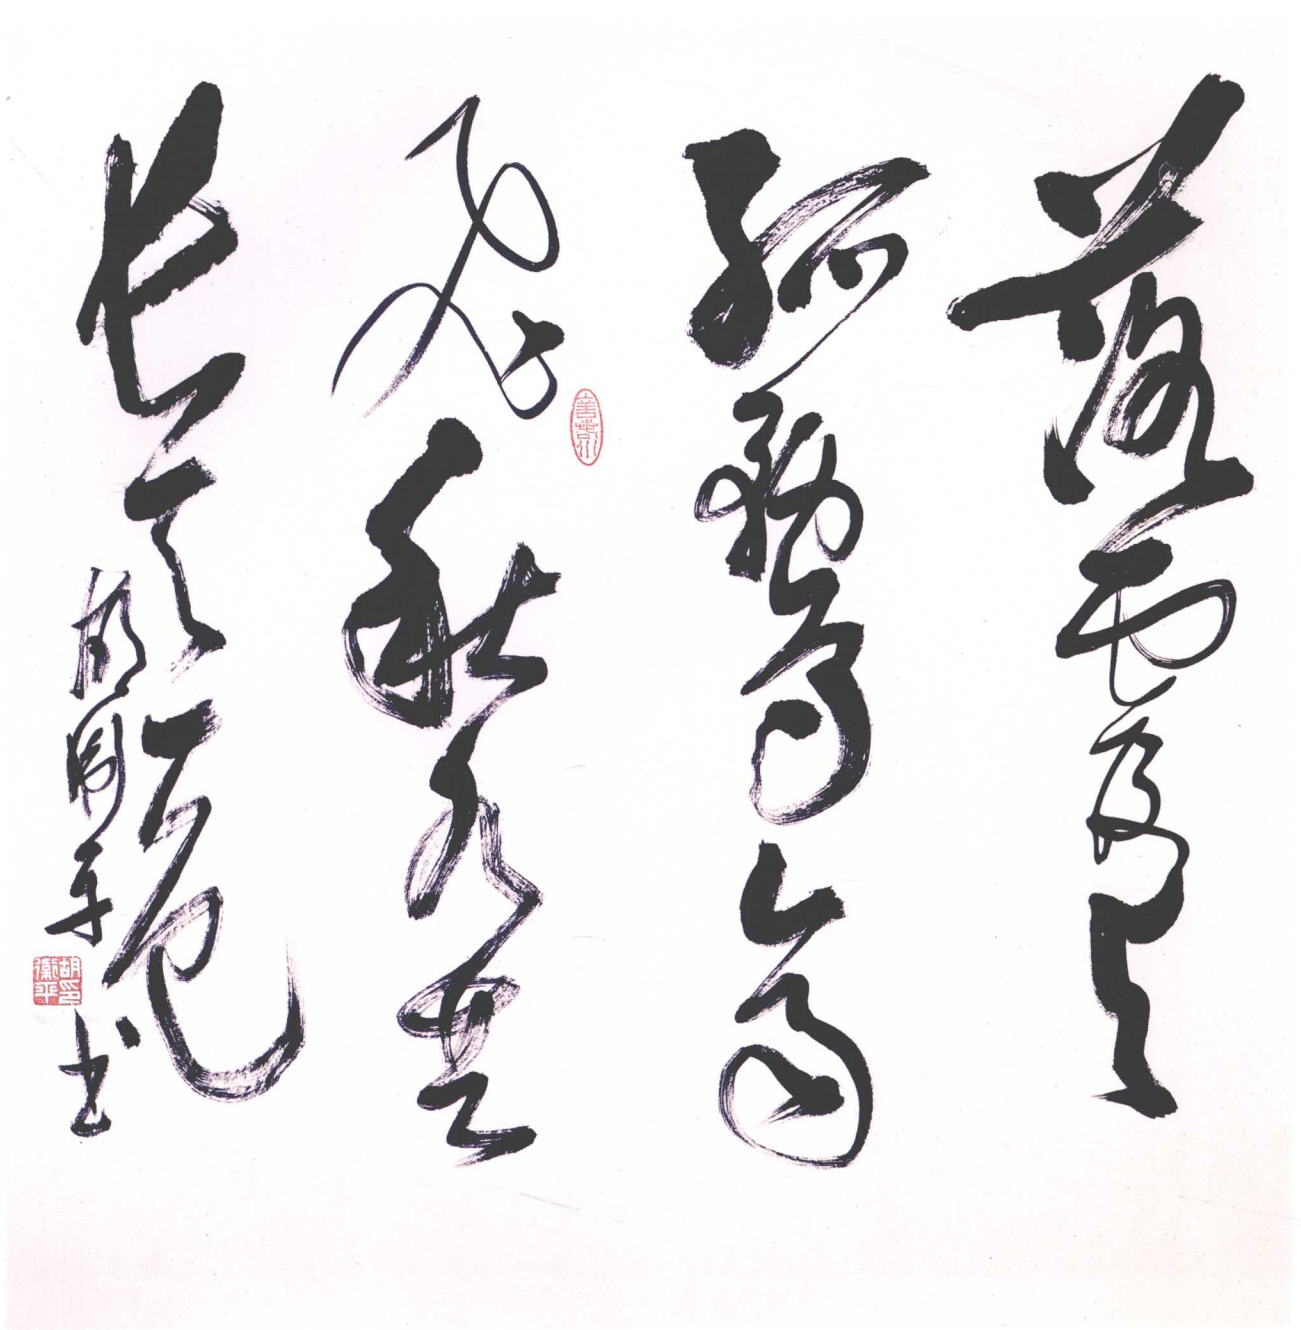 落霞与
孤鹜齐
飞秋水共
长天一色
胡卫平书
胡卫平印